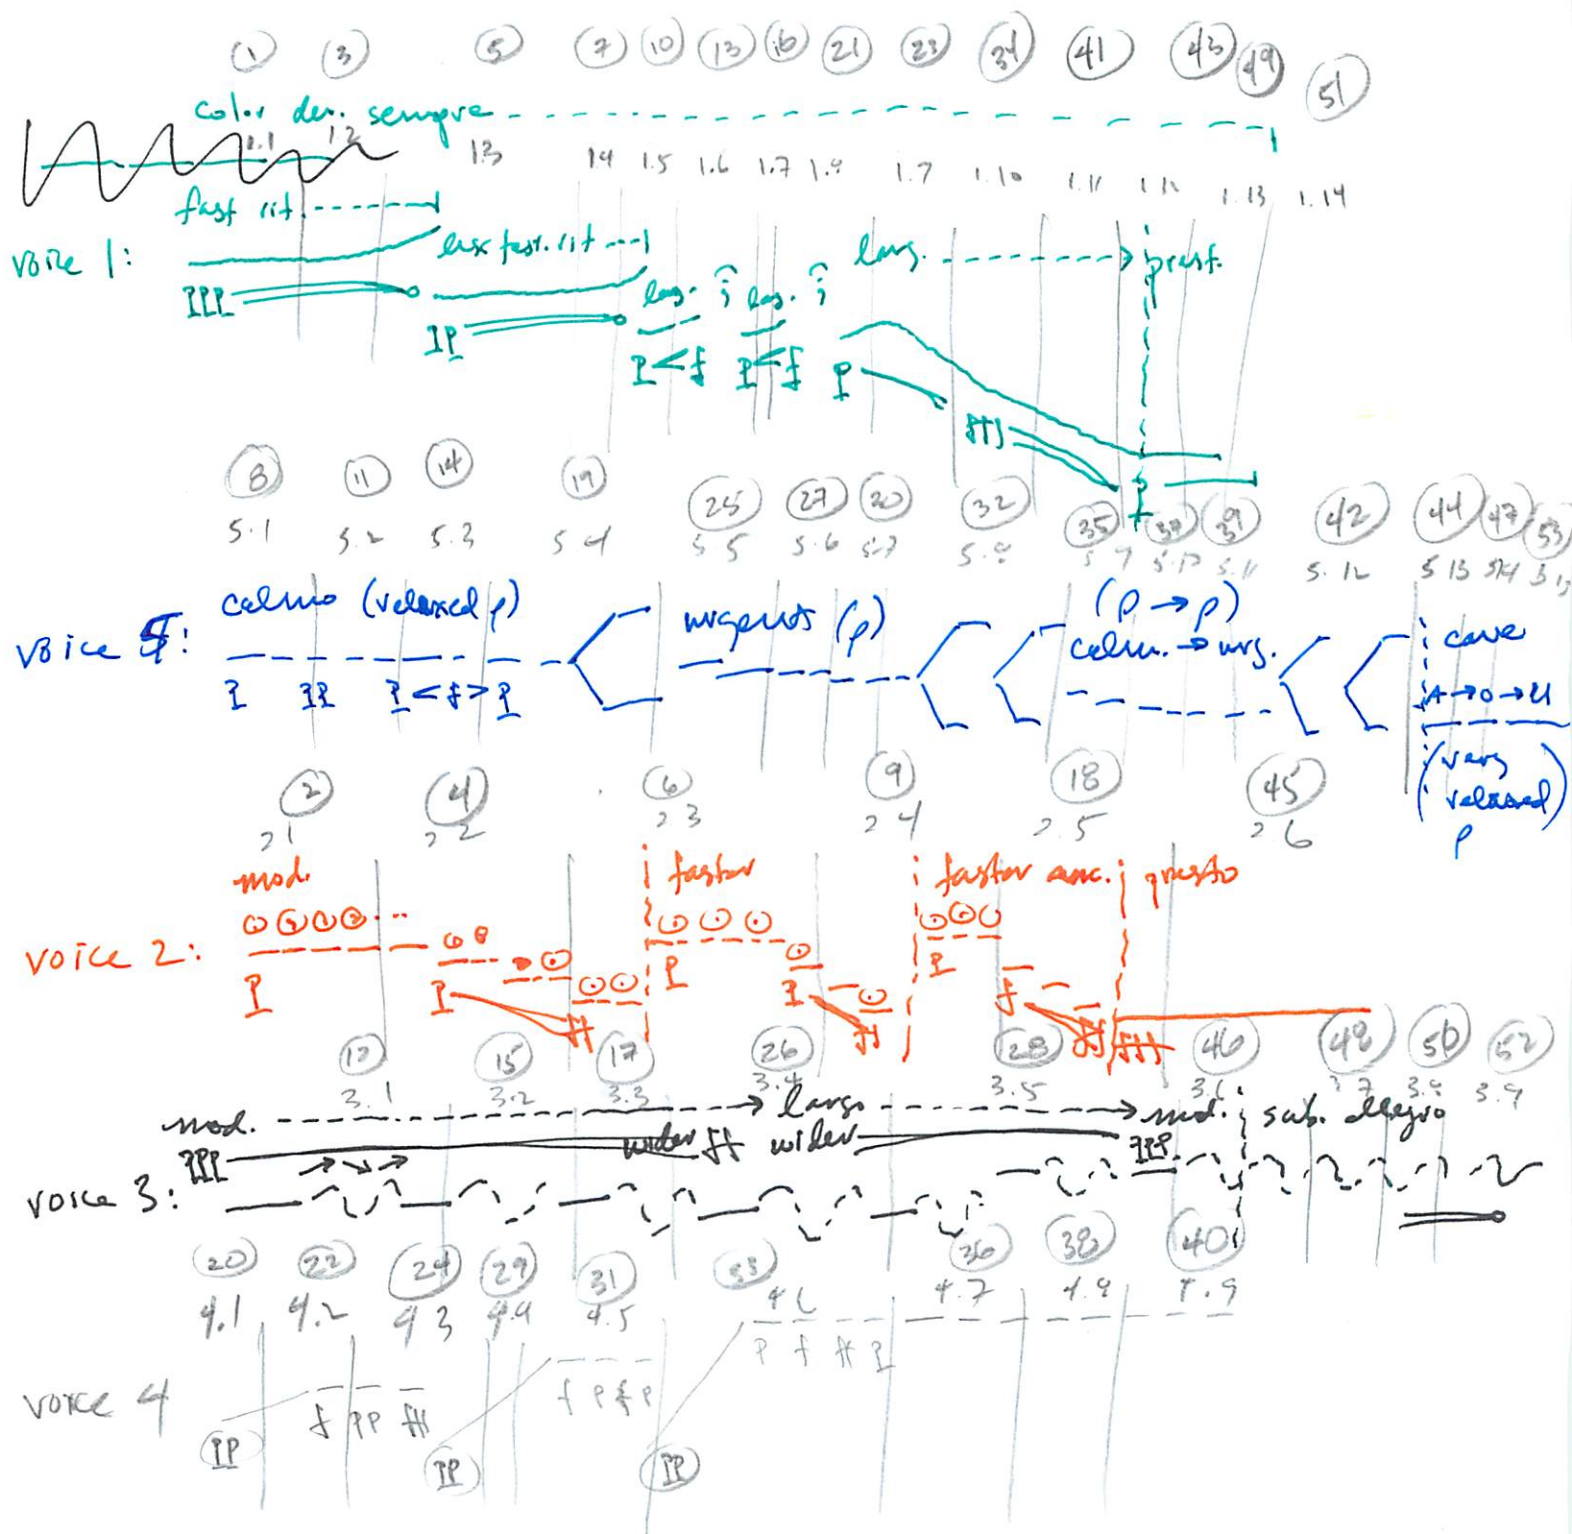 1 3 5 7 10 13 16 21 23 34 41 43 49 51
color sempre
1.1 1.2 1.3 1.4 1.5 1.6 1.7 1.8 1.9 1.10 1.11 1.12 1.13 1.14
fast rit.
voice 1:
PPP PP P < f P < f P P
8 11 14 19 25 27 30 32 35 37 39 42 44 47 53
5.1 5.2 5.3 5.4 5.5 5.6 5.7 5.8 5.9 5.10 5.11 5.12 5.13 5.14
calmo (relaxed p) urgent (p) (p → p) calm. → urg.
voice 5:
P PP P < f > P A → O → U
(very
relaxed)
p
2 4 6 9 18 45
2.1 2.2 2.3 2.4 2.5 2.6
mod. faster faster anc. presto
voice 2:
P P ff P P ff P f ff fff
12 15 17 26 28 46 48 50 52
3.1 3.2 3.3 3.4 3.5 3.6 3.7 3.8 3.9
mod. largo mod. sub. allegro
PPP wider ff wider PPP
voice 3:
20 22 24 29 31 33 36 38 40
4.1 4.2 4.3 4.4 4.5 4.6 4.7 4.8 4.9
P f ff P
voice 4
f PP fff f P f P
PP PP PP